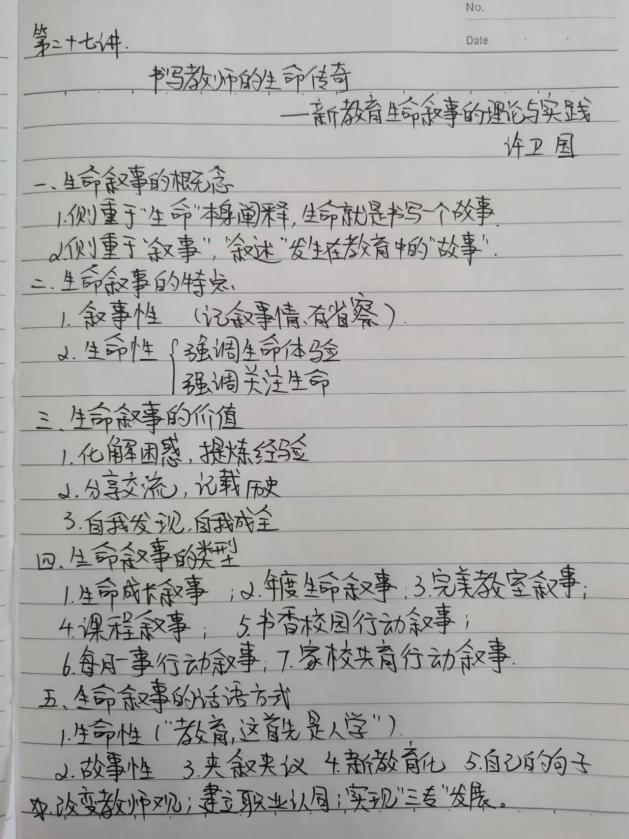 No.
Date
第二十七讲.
书写教师的生命传奇
—新教育生命叙事的理论与实践
许卫国
一、生命叙事的概念
1.侧重于"生命"本身阐释,生命就是书写一个故事.
2.侧重于"叙事","叙述"发生在教育中的"故事".
二、生命叙事的特点、
1. 叙事性 (记叙事情、有省察).
2. 生命性 { 强调生命体验
强调关注生命
三、生命叙事的价值
1.化解困惑,提炼经验
2.分享交流,记载历史
3.自我发现,自我成全
四、生命叙事的类型
1.生命成长叙事 ;2.年度生命叙事;3.完美教室叙事;
4.课程叙事; 5.书香校园行动叙事;
6.每月一事行动叙事;7.家校共育行动叙事.
五、生命叙事的话语方式
1.生命性("教育,这首先是人学").
2.故事性 3.夹叙夹议 4.新教育化 5.自己的句子
改变教师观;建立职业认同;实现"三专"发展。